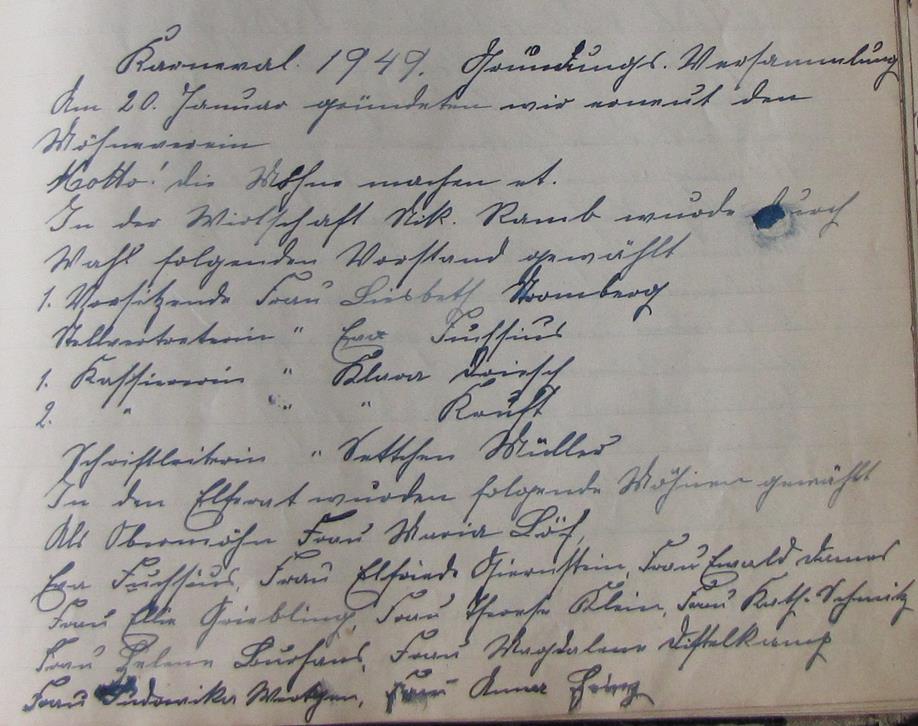 Karneval. 1949. Gründungs. Versammlung
Am 20. Januar gründeten wir erneut den
Möhneverein
Motto! die Möhne machen et.
In der Wirtschaft Nik. Ramb wurde durch
Wahl folgenden Vorstand gewählt
1. Vorsitzende Frau Liesbeth Stromberg
Stellvertreterin " Eva Fuchsius
1. Kassiererin " Klara Driesch
2. " " " Kruft
Schriftleiterin " Settchen Müller
In den Elferat wurden folgende Möhnen gewählt
Als Obermöhn Frau Maria Löf,
Eva Fuchsius, Frau Elfriede Giernstein, Frau Ewald Dames
Frau Elie Griebling, Frau Therese Klein, Frau Kath. Schmitz
Frau Helene Burhans, Frau Magdalene Distelkamp
Frau Ludowika Wertgen, Frau Anna